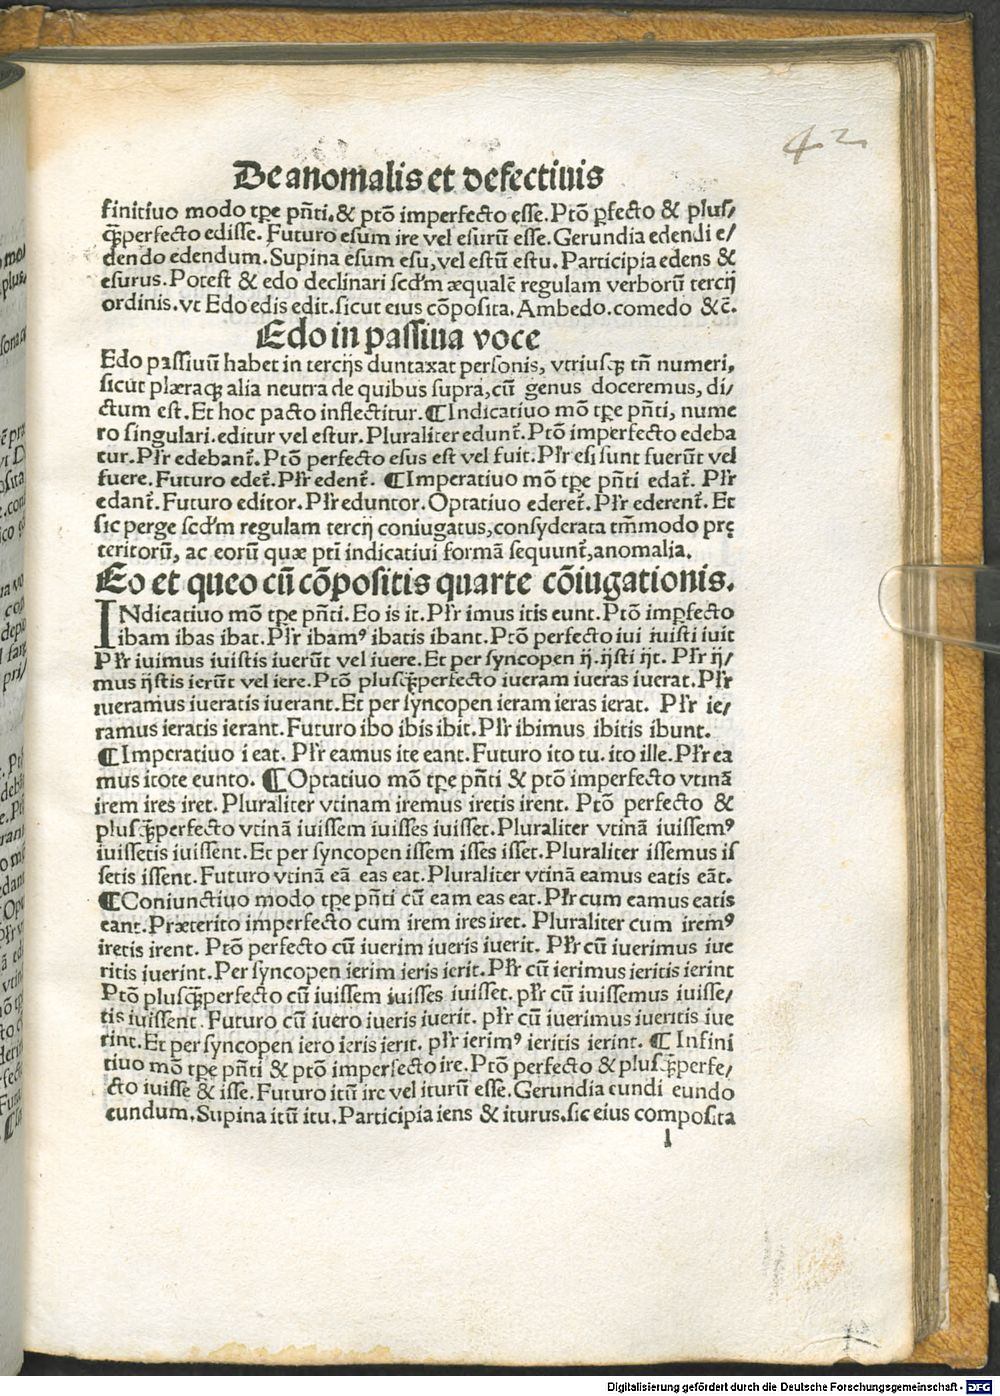 42
De anomalis et defectiuis
finitiuo modo tp̄e p̄nti.& ptō imperfecto esse. Ptō ꝑfecto & plus/
qꝫperfecto edisse. Futuro esum ire vel esurū esse. Gerundia edendi e/
dendo edendum. Supina esum esu, vel estū estu. Participia edens &
esurus. Potest & edo declinari scd'm æqualē regulam verborū tercij
ordinis. vt Edo edis edit. sicut eius cōposita. Ambedo. comedo &c̄.
Edo in passiua voce
Edo passiuū habet in tercijs duntaxat personis, vtriusqꝫ tn̄ numeri,
sicut plæraqꝫ alia neutra de quibus supra, cū genus doceremus, di/
ctum est. Et hoc pacto inflectitur. ¶Indicatiuo mō tp̄e p̄nti, nume
ro singulari. editur vel estur. Pluraliter edunt̄. Ptō imperfecto edeba
tur. Pl̄r edebant̄. Ptō perfecto esus est vel fuit. Pl̄r esi sunt fuerūt vel
fuere. Futuro edet̄. Pl̄r edent̄. ¶Imperatiuo mō tp̄e p̄nti edat̄. Pl̄r
edant̄. Futuro editor. Pl̄r eduntor. Optatiuo ederet̄. Pl̄r ederent̄. Et
sic perge scd'm regulam tercij coniugatus, consyderata tm̄modo prę
teritorū, ac eorū quæ pti indicatiui formā sequunt̄, anomalia.
Eo et queo cū cōpositis quarte cōiugationis.
INdicatiuo mō tp̄e p̄nti. Eo is it. Pl̄r imus itis eunt. Ptō imꝑfecto
ibam ibas ibat. Pl̄r ibamꝰ ibatis ibant. Ptō perfecto iui iuisti iuit
Pl̄r iuimus iuistis iuerūt vel iuere. Et per syncopen ij. ijsti ijt. Pl̄r ij/
mus ijstis ierūt vel iere. Ptō plusqꝫperfecto iueram iueras iuerat. Pl̄r
iueramus iueratis iuerant. Et per syncopen ieram ieras ierat. Pl̄r ie/
ramus ieratis ierant. Futuro ibo ibis ibit. Pl̄r ibimus ibitis ibunt.
¶Imperatiuo i eat. Pl̄r eamus ite eant. Futuro ito tu. ito ille. Pl̄r ea
mus itote eunto. ¶Optatiuo mō tp̄e p̄nti & ptō imperfecto vtinā
irem ires iret. Pluraliter vtinam iremus iretis irent. Ptō perfecto &
plusqꝫperfecto vtinā iuissem iuisses iuisset. Pluraliter vtinā iuissemꝰ
iuissetis iuissent. Et per syncopen issem isses isset. Pluraliter issemus is
setis issent. Futuro vtinā eā eas eat. Pluraliter vtinā eamus eatis eāt.
¶Coniunctiuo modo tp̄e p̄nti cū eam eas eat. Pl̄r cum eamus eatis
eant. Præterito imperfecto cum irem ires iret. Pluraliter cum iremꝰ
iretis irent. Ptō perfecto cū iuerim iueris iuerit. Pl̄r cū iuerimus iue
ritis iuerint. Per syncopen ierim ieris ierit. Pl̄r cū ierimus ieritis ierint
Ptō plusqꝫperfecto cū iuissem iuisses iuisset. pl̄r cū iuissemus iuisse/
tis iuissent. Futuro cū iuero iueris iuerit. pl̄r cū iuerimus iueritis iue
rint. Et per syncopen iero ieris ierit. pl̄r ierimꝰ ieritis ierint. ¶Infini
tiuo mō tp̄e p̄nti & ptō imperfecto ire. Ptō perfecto & plusqꝫperfe/
cto iuisse & isse. Futuro itū ire vel iturū esse. Gerundia eundi eundo
eundum. Supina itū itu. Participia iens & iturus. sic eius composita
l
Digitalisierung gefördert durch die Deutsche Forschungsgemeinschaft - DFG